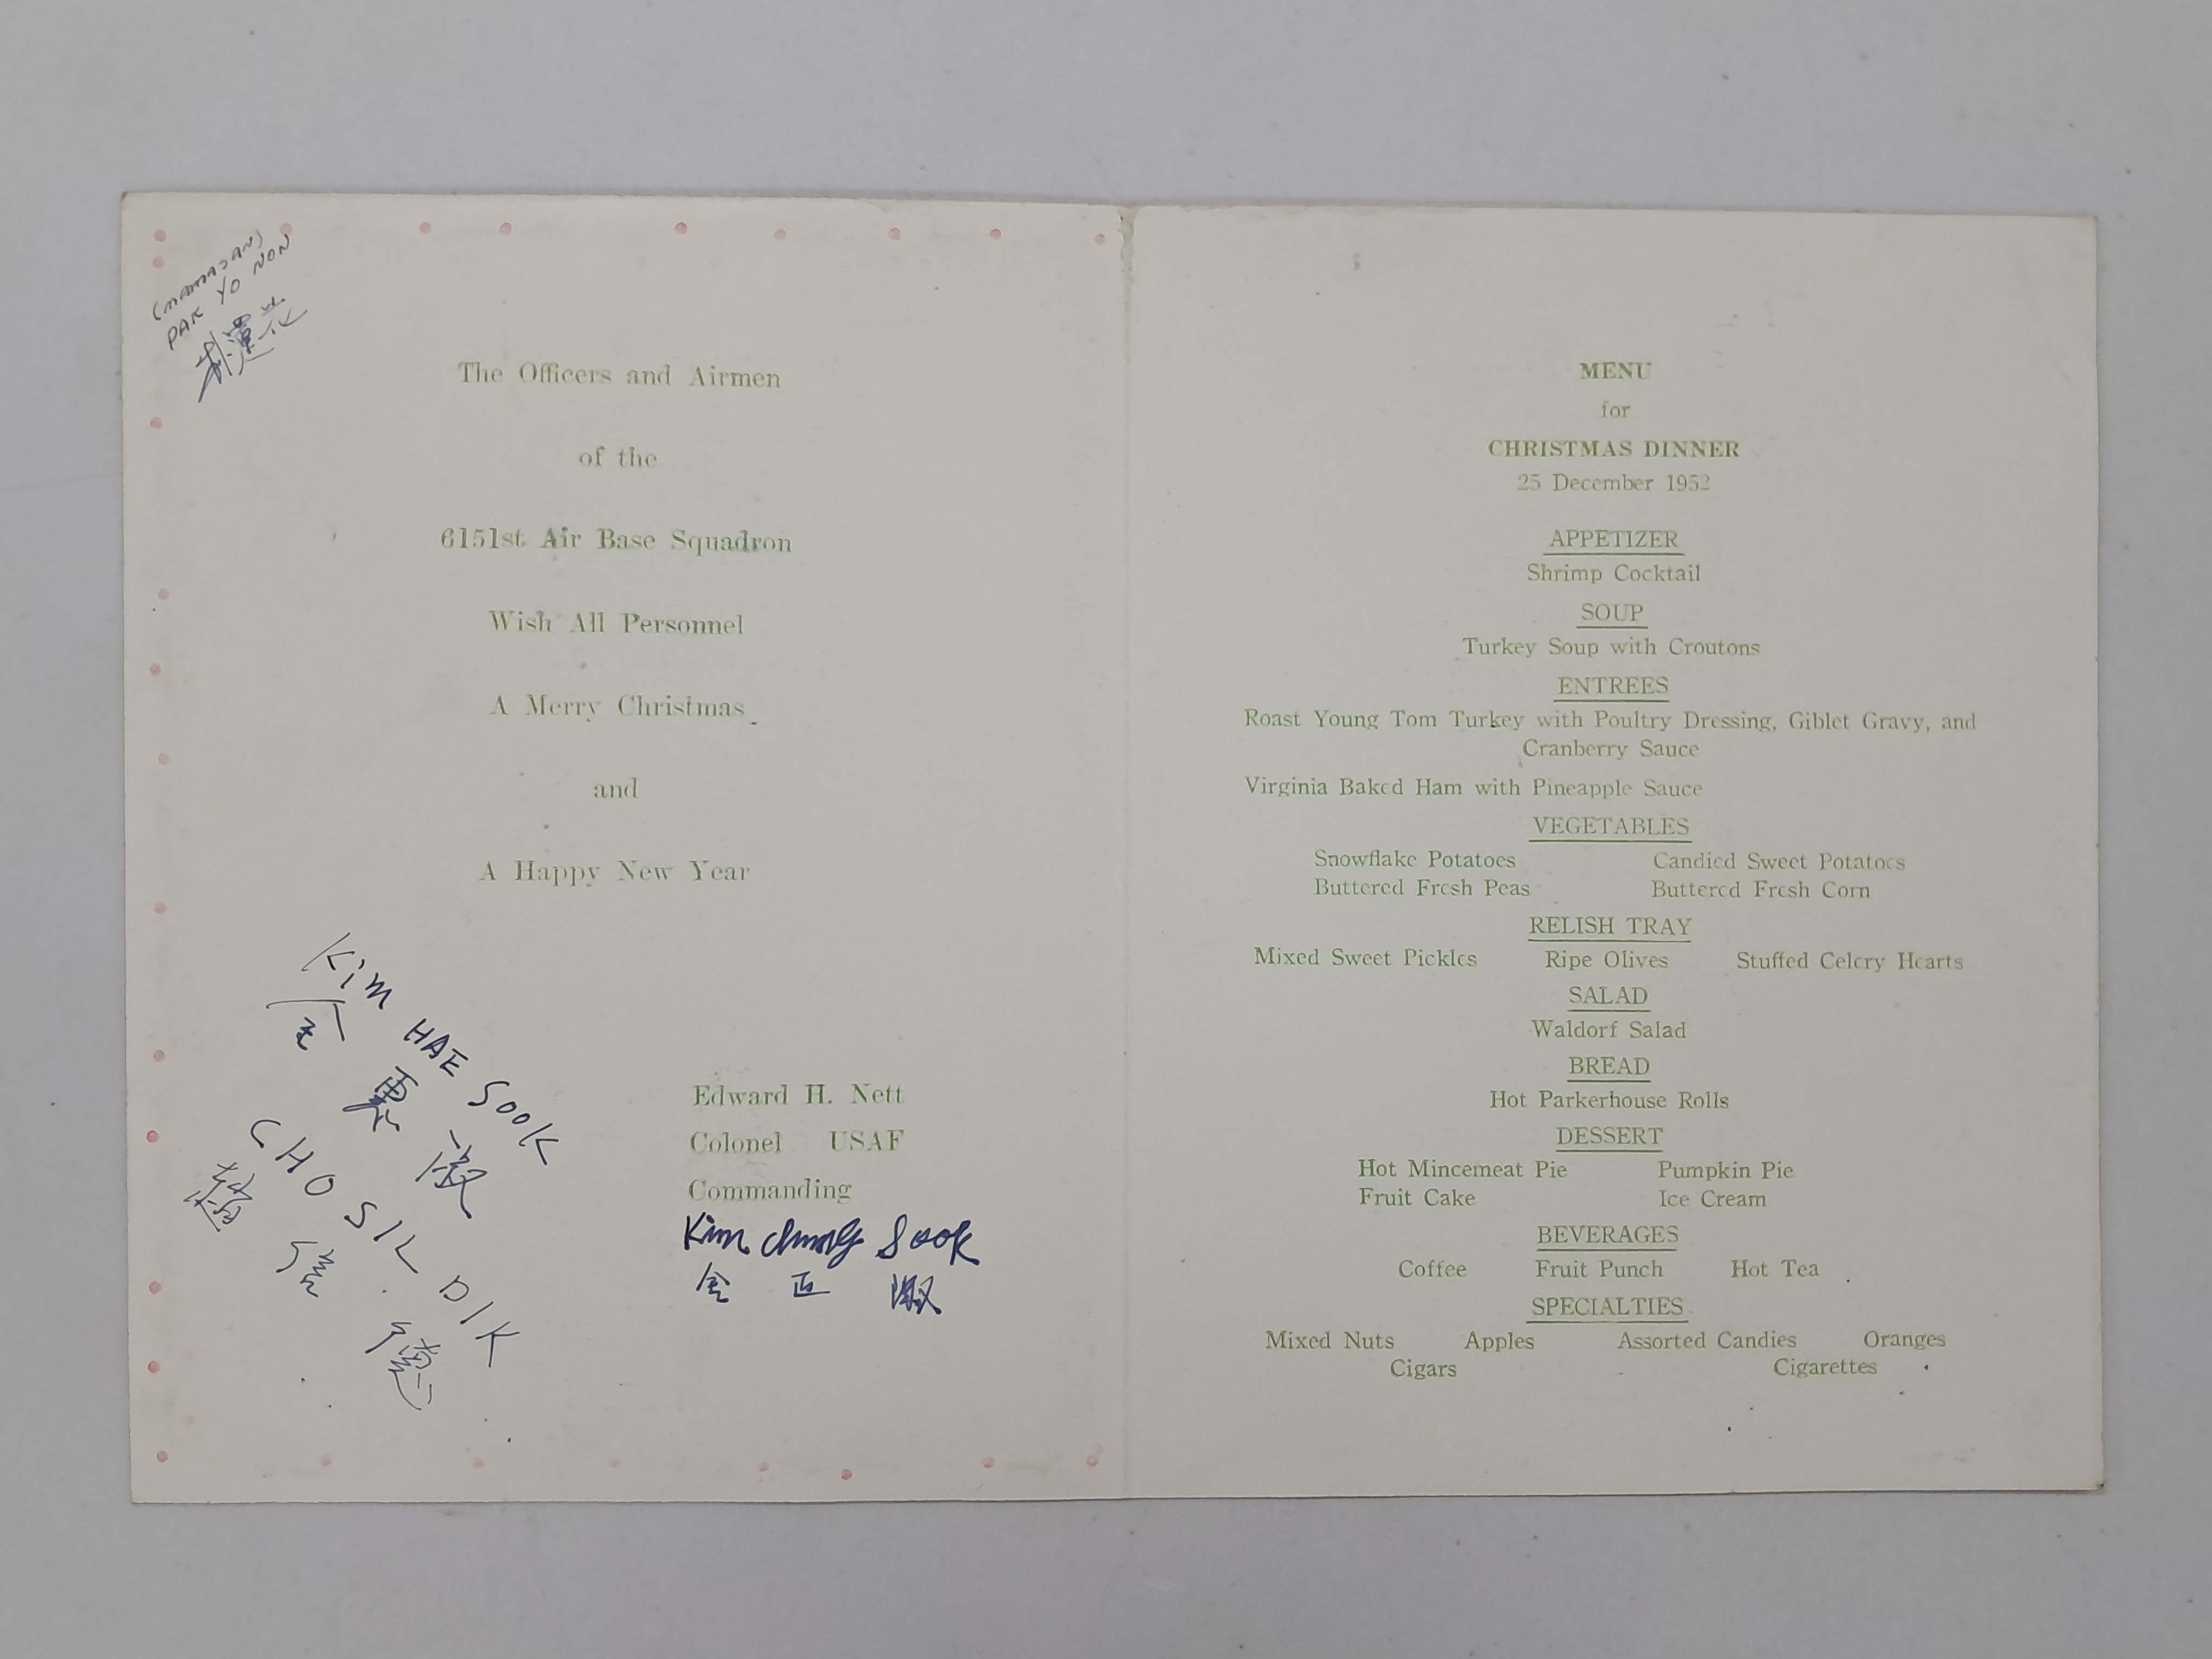 (MAMASAN)
PAK YO NON
The Officers and Airmen
of the
6151st Air Base Squadron
Wish All Personnel
A Merry Christmas
and
A Happy New Year
Kim HAE SOOK
金 惠 淑
CHO SIK DIK
趙
Edward H. Nett
Colonel USAF
Commanding
Kim Chung Sook
金 正 淑
MENU
for
CHRISTMAS DINNER
25 December 1952
APPETIZER
Shrimp Cocktail
SOUP
Turkey Soup with Croutons
ENTREES
Roast Young Tom Turkey with Poultry Dressing, Giblet Gravy, and
Cranberry Sauce
Virginia Baked Ham with Pineapple Sauce
VEGETABLES
Snowflake Potatoes Candied Sweet Potatoes
Buttered Fresh Peas Buttered Fresh Corn
RELISH TRAY
Mixed Sweet Pickles Ripe Olives Stuffed Celery Hearts
SALAD
Waldorf Salad
BREAD
Hot Parkerhouse Rolls
DESSERT
Hot Mincemeat Pie Pumpkin Pie
Fruit Cake Ice Cream
BEVERAGES
Coffee Fruit Punch Hot Tea
SPECIALTIES
Mixed Nuts Apples Assorted Candies Oranges
Cigars Cigarettes